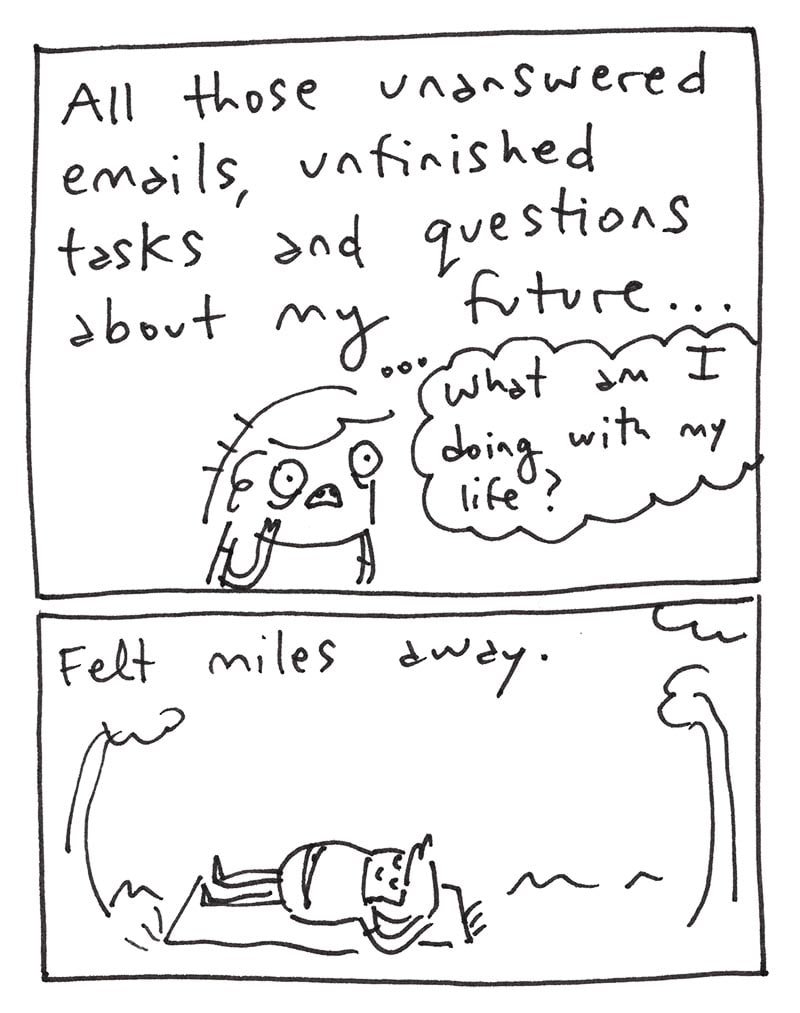 All those unanswered
emails, unfinished
tasks and questions
about my future...
...
What am I
doing with my
life?
Felt miles away.